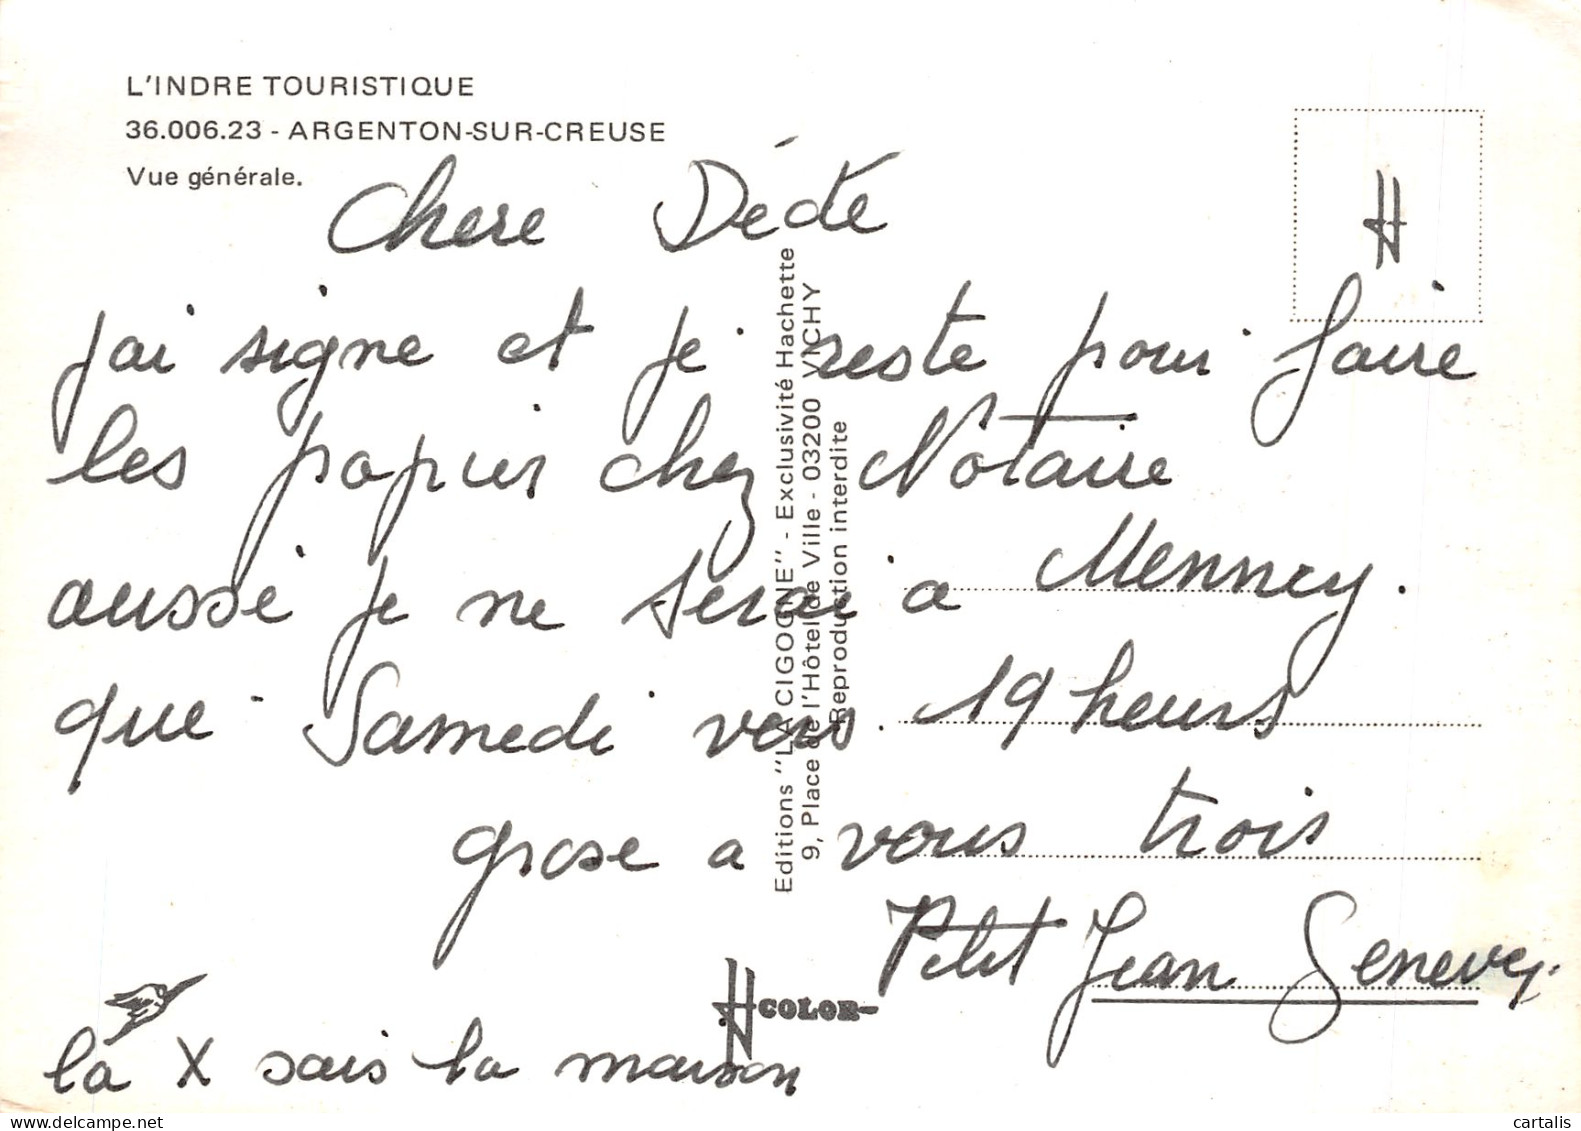 L'INDRE TOURISTIQUE
36.006.23 - ARGENTON-SUR-CREUSE
Vue générale.
Chere Dédé
jai signe et je reste pour faire
les papier chez Notaire
aussi je ne serai a Mennecy.
que Samedi vers 19 heurs
grose a vous trois
Petit Jean Genevy.
là X sais la maison
Editions "LA CIGOGNE" - Exclusivité Hachette
9, Place de l'Hôtel de Ville - 03200 VICHY
Reproduction interdite
H
COLOR
cartalis